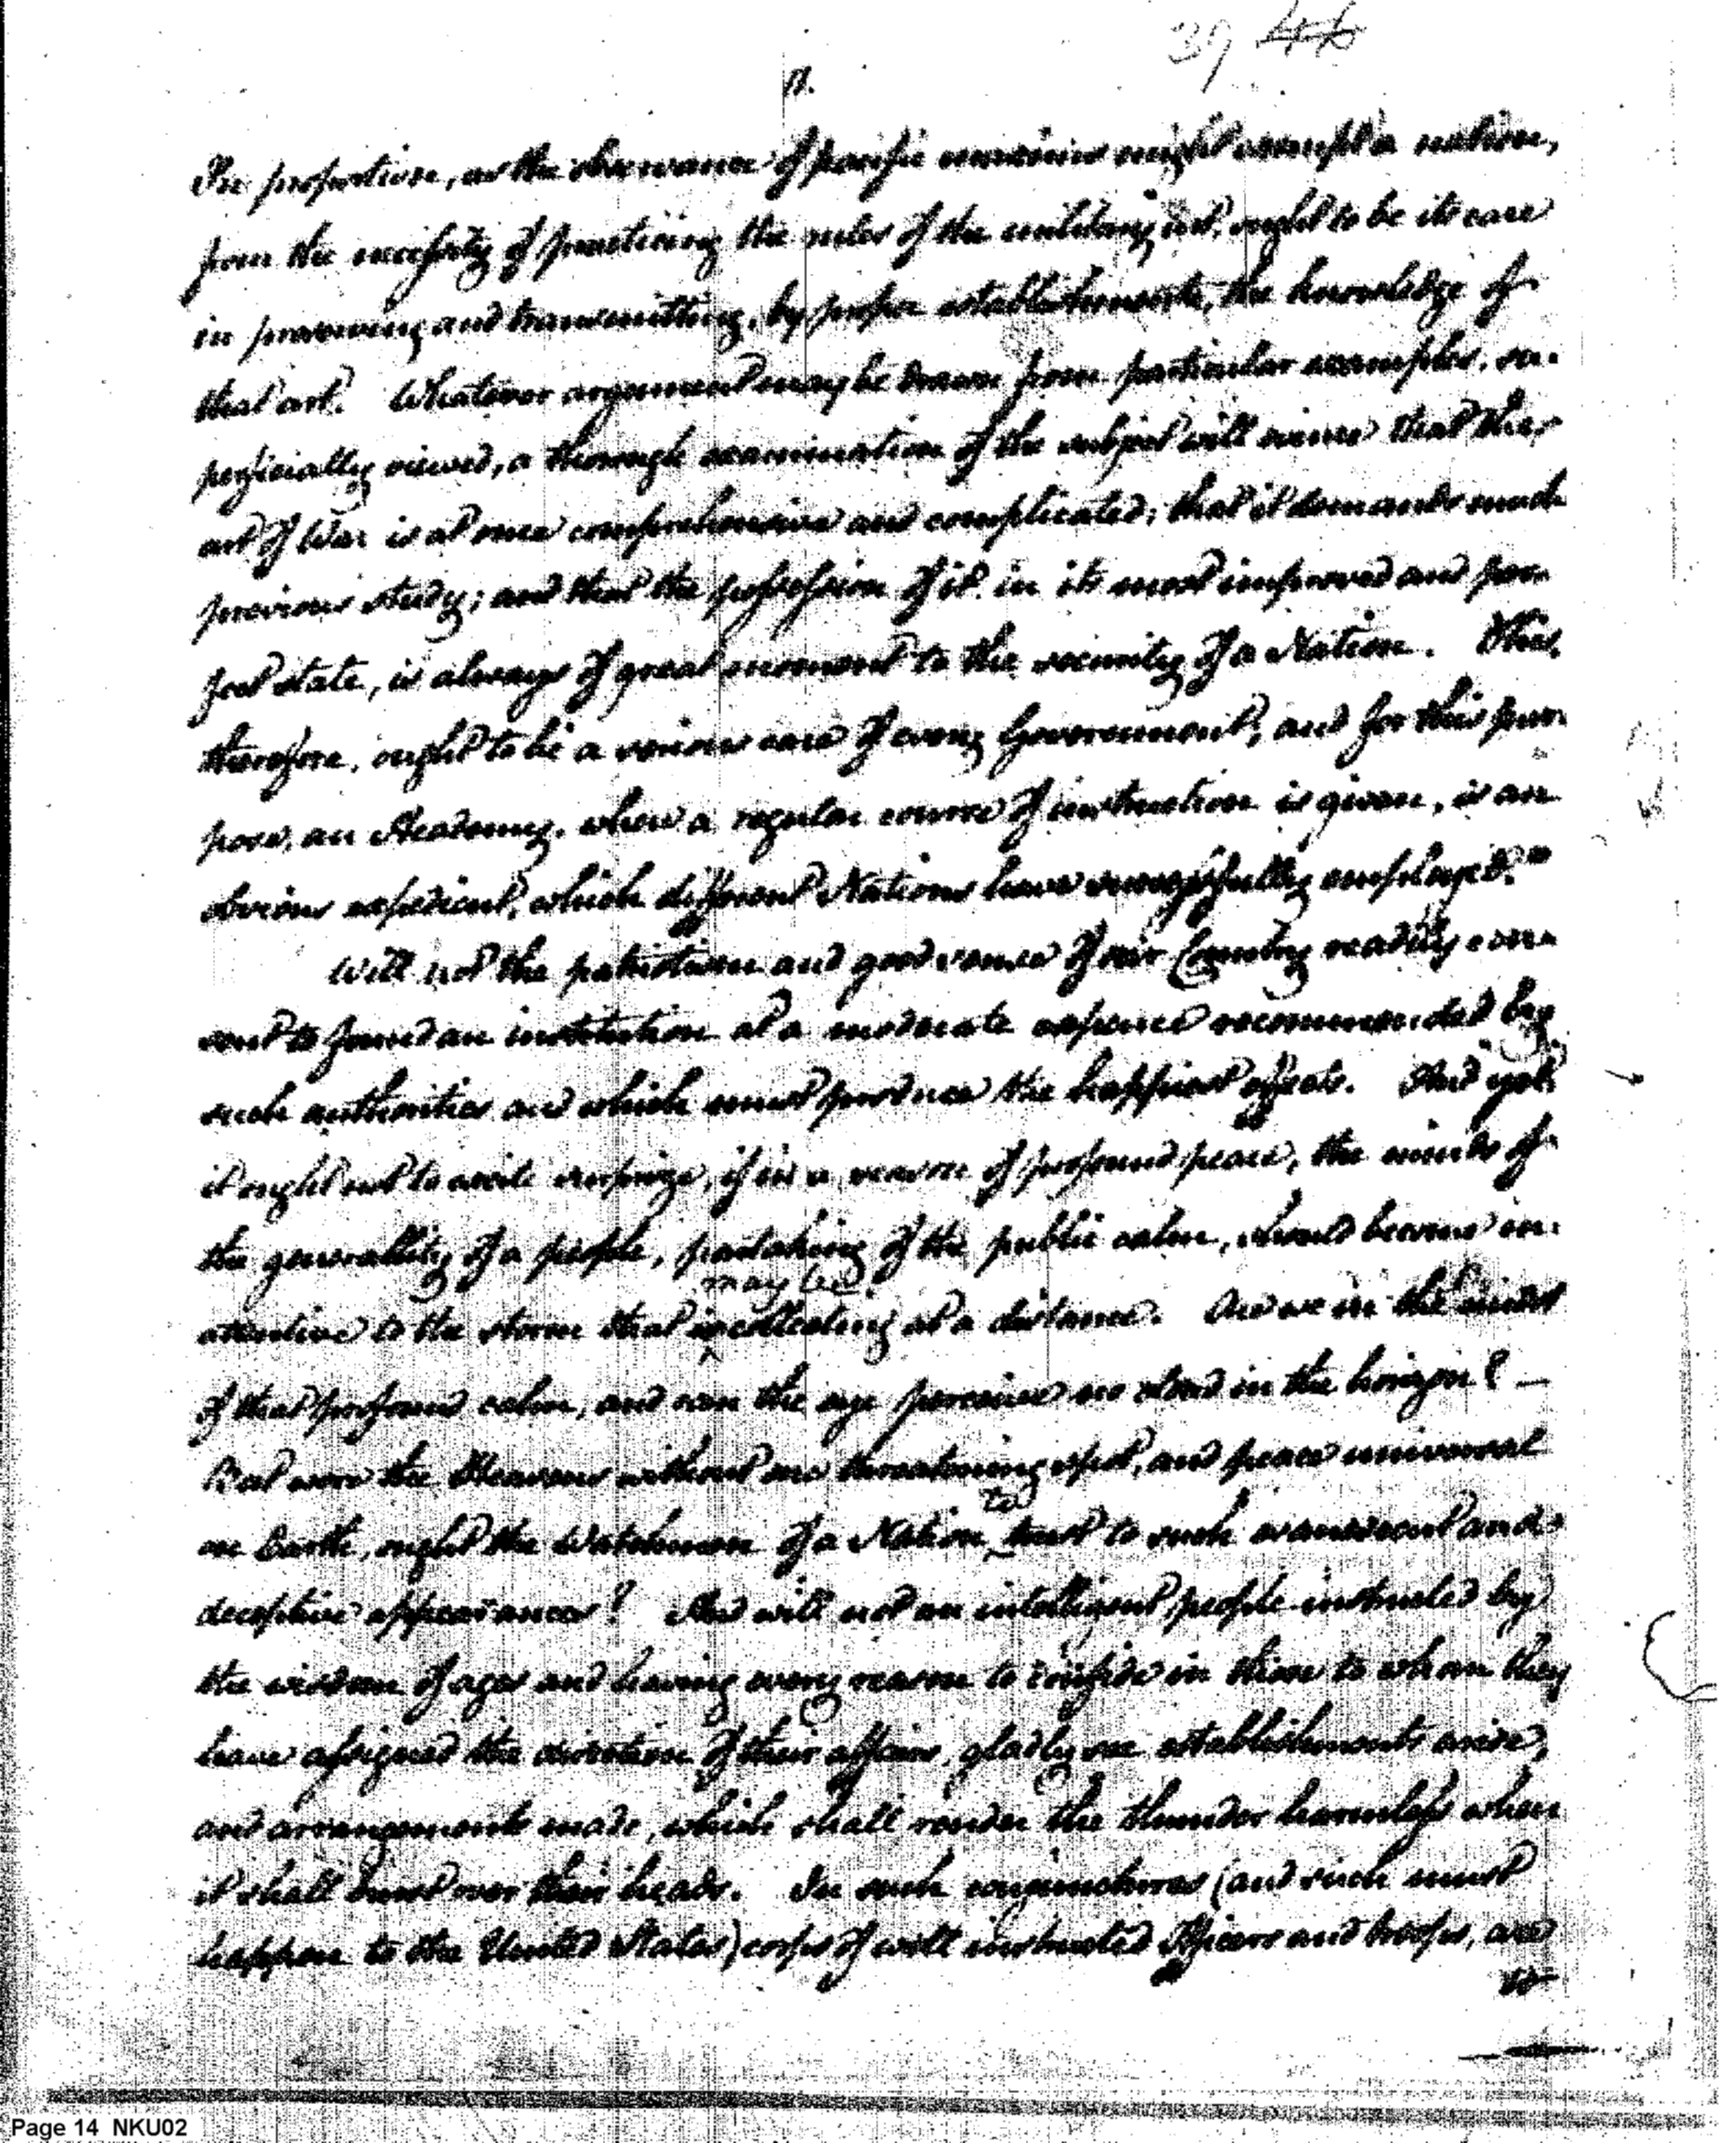 39 46
11.
In proportion, as the observance of pacific maxims might exempt a nation,
from the necessity of practicing the rules of the military art, ought to be its care
in preserving and transmitting, by proper establishments, the knowledge of
that art. Whatever argument may be drawn from particular examples, su-
perficially viewed, a thorough examination of the subject will evince that the
art of War is at once comprehensive and complicated; that it demands much
previous study; and that the possession of it in its most improved and per-
fect state, is always of great moment to the security of a Nation. This,
therefore, ought to be a serious care of every Government, and for this pur-
pose, an Academy, where a regular course of instruction is given, is an
obvious expedient, which different Nations have successfully employed."
Will not the patriotism and good sense of our Country readily con-
sent to found an institution at a moderate expence recommended by
such authorities and which must produce the happiest effects. And yet
it ought not to excite surprize, if in a season of profound peace, the minds of
the generallity of a people, partaking of the public calm, should become in-
may be
attentive to the storm that is collecting at a distance. Are we in the midst
of that profound calm, and can the eye perceive no cloud in the horizon? —
But were the Heavens without one threatening spot, and peace universal
to
on Earth, ought the Watchmen of a Nation trust to such evanescent and
deceptive appearances? And will not an intelligent people instructed by
the wisdom of ages and having every reason to confide in those to whom they
have assigned the direction of their affairs, gladly see establishments arise,
and arrangements made, which shall render the thunder harmless when
it shall burst over their heads. In such conjunctures (and such must
happen to the United States) corps of well instructed Officers and troops, are
to
Page 14 NKU02